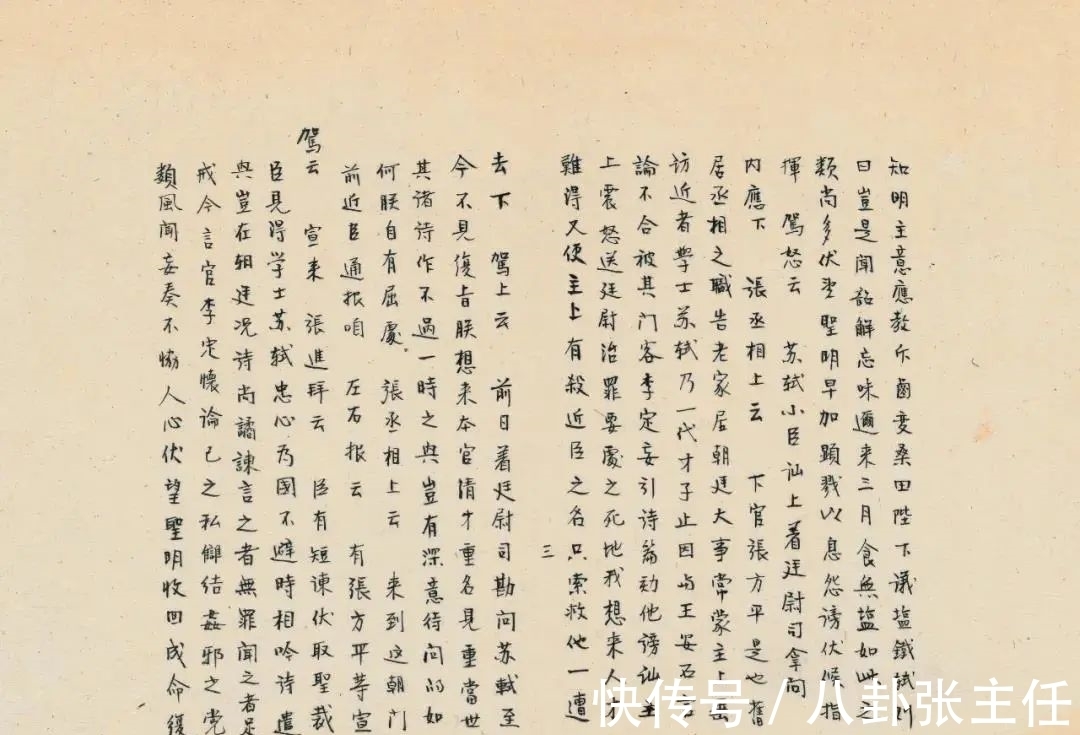 知明主意應教斥鹵変桑田陛下議塩鐵軾則
曰豈是聞韶解忘味邇来三月食無塩如此之
類尚多伏望聖明早加顯戮以息怨謗伏候指
揮 駕怒云 苏軾小臣讪上着廷尉司拿问
内應下 張丞相上云 下官張方平是也舊
居丞相之職告老家居朝廷大事常蒙主上
访近者學士苏軾乃一代才子止因与王安石
論不合被其门客李定妄引诗篇劾他谤讪主
上震怒送廷尉治罪要處之死地我想来人才
難得又使主上有殺近臣之名只索救他一遭
三
去下 駕上云 前日着廷尉司勘问苏軾至
今不見復旨朕想来本官清才重名見重當世
其诸诗作不過一時之興豈有深意待问的如
何朕自有屈處 張丞相上云 来到这朝门
前近臣通报咱 左右报云 有張方平等宣
駕云 宣来 張進拜云 臣有短諫伏取聖裁
臣見得学士苏軾忠心为國不避時相吟诗遣
興豈在朝廷况诗尚譎諫言之者無罪聞之者足
戒今言官李定懷論己之私雠结姦邪之党
類風聞妄奏不恊人心伏望聖明收回成命緩
快传号/八卦张主任